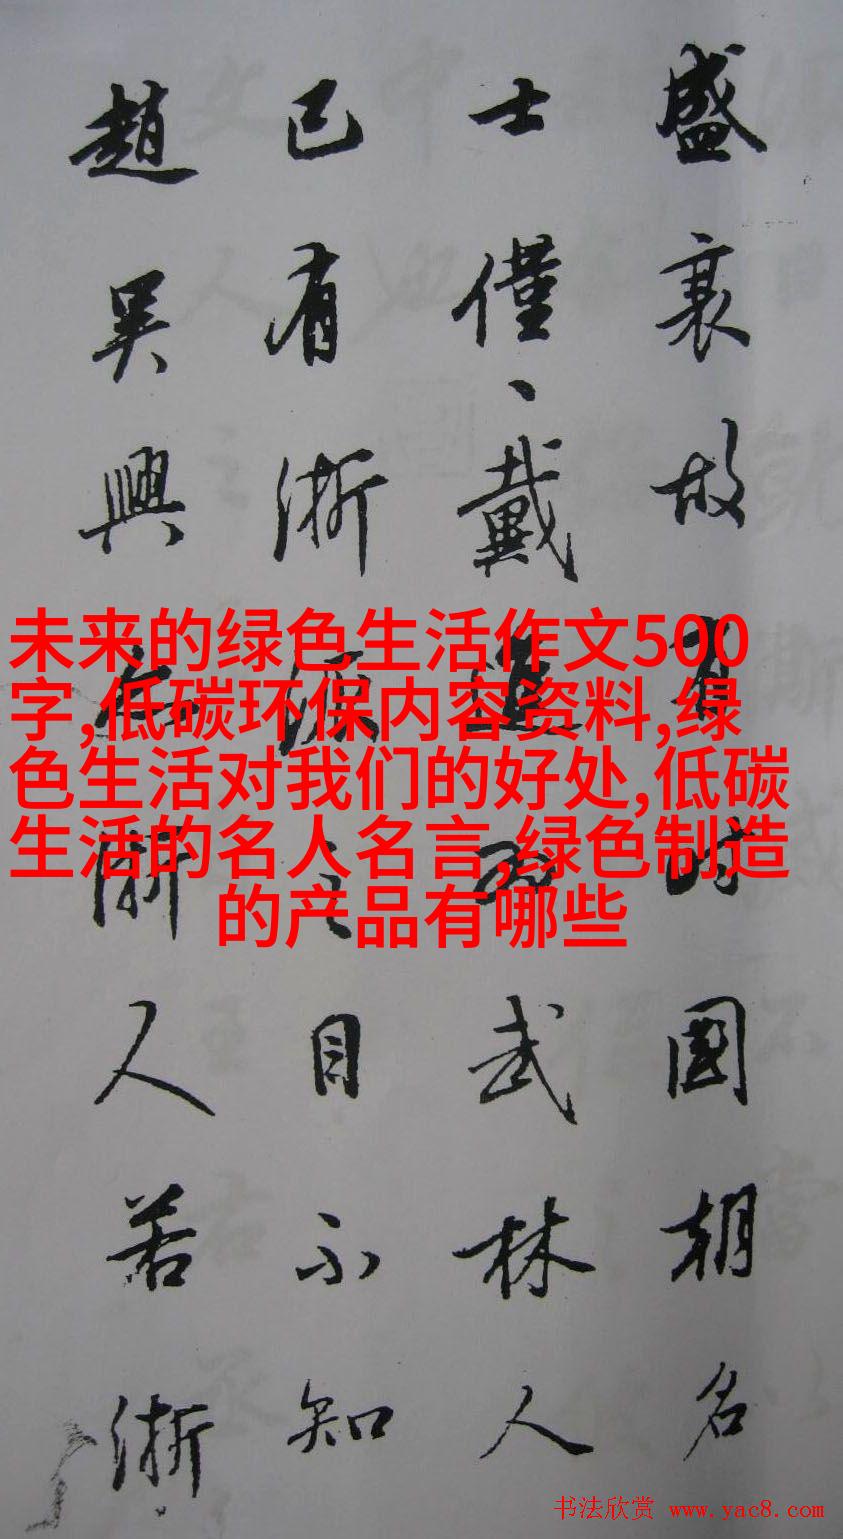 盛衰故有時國朝名
士僅、戴進武林人
已有浙派之目不知
趙吴興亦浙人若浙
未来的绿色生活作文500
字,低碳环保内容资料,绿
色生活对我们的好处,低碳
生活的名人名言,绿色制造
的产品有哪些
书法欣赏 www.yac8.com